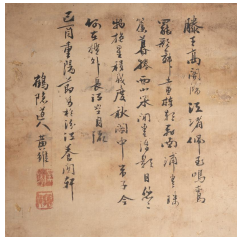 滕王高閣臨江渚佩玉鳴鸞
罷歌舞畫棟朝飛南浦雲珠
簾暮捲西山雨閒雲潭影日悠々
物換星移幾度秋閣中帝子今
何在檻外長江空自流
己酉重陽